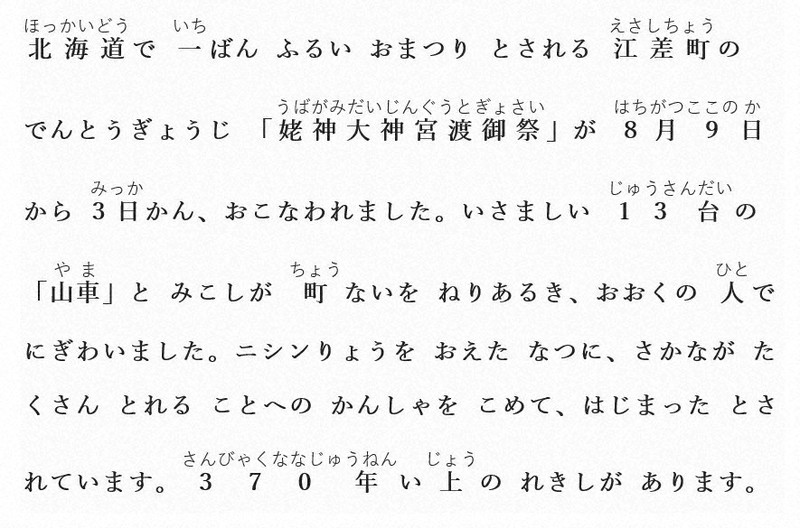 ほっかいどう いち えさしちょう
北海道で 一ばん ふるい おまつり とされる 江差町の
うばがみだいじんぐうとぎょさい はちがつここのか
でんとうぎょうじ 「姥神大神宮渡御祭」が 8月9日
みっか じゅうさんだい
から 3日かん、おこなわれました。いさましい 13台の
やま ちょう ひと
「山車」と みこしが 町ないを ねりあるき、おおくの 人で
にぎわいました。ニシンりょうを おえた なつに、さかなが た
くさん とれる ことへの かんしゃを こめて、はじまった とさ
さんびゃくななじゅうねん じょう
れています。 370年い上の れきしが あります。